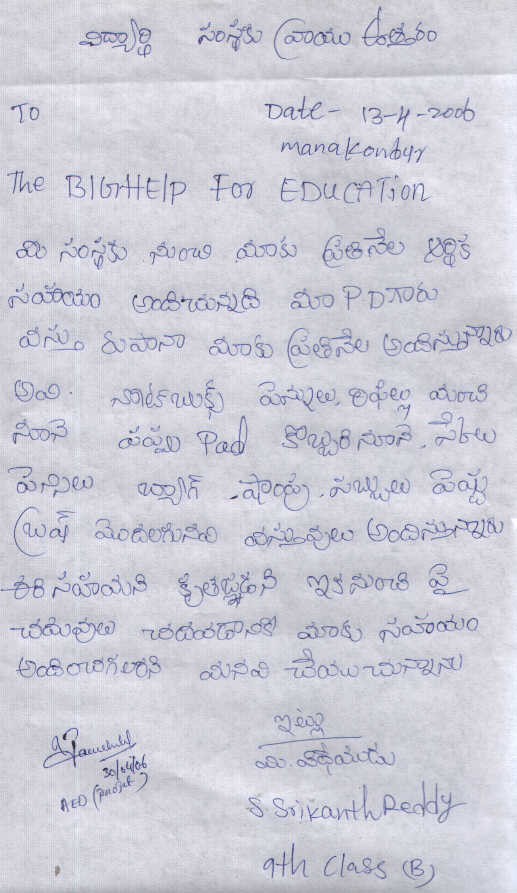 విద్యార్థి సంస్థకు వ్రాయు ఉత్తరం
TO Date- 13-4-2006
manakondur
The BIGHELP For EDUCATION
మీ సంస్థకు నుంచి మాకు ప్రతినెల ఆర్థిక
సహాయం అందిచున్నది మా PD గారు
వస్తు రుపానా మాకు ప్రతినెల అందిస్తున్నారు
అవి. నోట్ బుక్స్ పెన్నులు, రిఫిల్లు మంచి
నూనె పప్పు Pad కొబ్బరి నూనె, స్కేలు
పెన్సిలు బ్యాగ్ షాంపు, సబ్బులు పెస్టు
బ్రష్ మొదలగునవి వస్తువులు అందిస్తున్నారు
ఈ సహయని కృతజ్ఞుడని ఇక నుంచి పై
చదువులు చదవడానికి మాకు సహాయం
అందించగలరని మనవి చేయు చున్నాను
ఇట్లు
మీ. విధేయుడు
S Srikanth Reddy
9th Class (B)
30/04/06
AED (project)